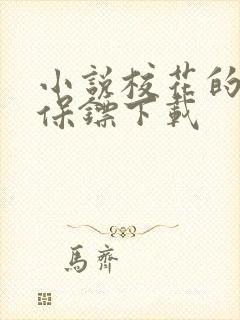 小說校花的
保鏢下載
馬齊